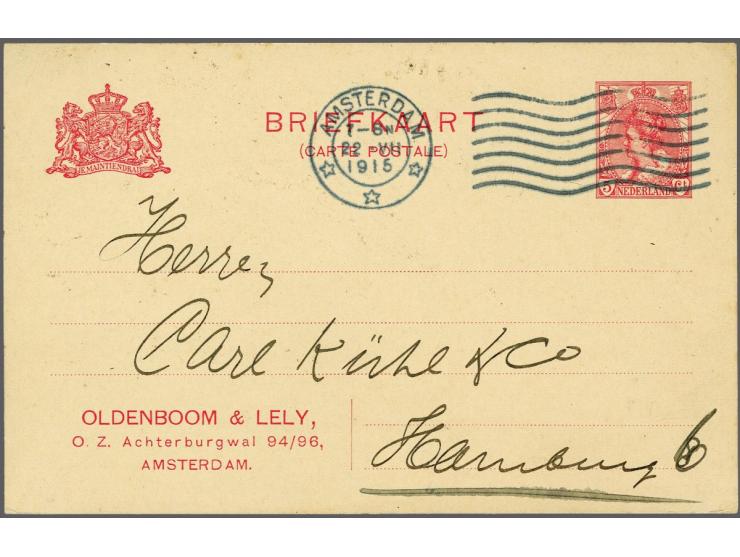 JE MAINTIENDRAI
BRIEFKAART
(CARTE POSTALE)
AMSTERDAM
22 VII
1915
5 Ct
NEDERLAND
Herren
Carl Kühl & Co
OLDENBOOM & LELY,
O. Z. Achterburgwal 94/96,
AMSTERDAM.
Hamburg